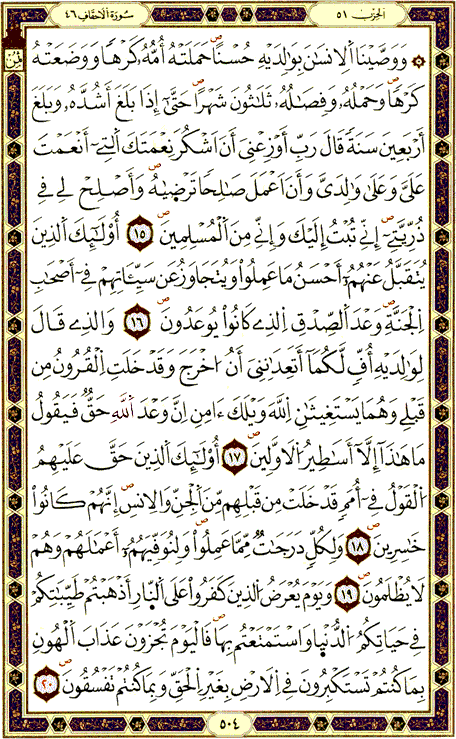 الحِزْب ٥١
سُورَةُ الأَحْقَافِ ٤٦
ثُمُن
۞ وَوَصَّيْنَا اَ۬لِانسَٰنَ بِوَٰلِدَيْهِ حُسْناً حَمَلَتْهُ أُمُّهُۥ كَرْهاً وَوَضَعَتْهُ
كَرْهاً وَحَمْلُهُۥ وَفِصَٰلُهُۥ ثَلَٰثُونَ شَهْراً حَتَّىٰٓ إِذَا بَلَغَ أَشُدَّهُۥ وَبَلَغَ
أَرْبَعِينَ سَنَةً قَالَ رَبِّ أَوْزِعْنِىَ أَنَ اَشْكُرَ نِعْمَتَكَ اَ۬لتِےٓ أَنْعَمْتَ
عَلَىَّ وَعَلَىٰ وَٰلِدَىَّ وَأَنَ اَعْمَلَ صَٰلِحاً تَرْضَيٰهُ وَأَصْلِحْ لِے فِے
ذُرِّيَّتِىَ إِنِّے تُبْتُ إِلَيْكَ وَإِنِّے مِنَ اَ۬لْمُسْلِمِينَ ١٥ أُوْلَٰٓئِكَ اَ۬لذِينَ
يُتَقَبَّلُ عَنْهُمُۥٓ أَحْسَنُ مَا عَمِلُواْ وَيُتَجَاوَزُ عَن سَيِّـَٔاتِهِمْ فِےٓ أَصْحَٰبِ
اِ۬لْجَنَّةِ وَعْدَ اَ۬لصِّدْقِ اِ۬لذِے كَانُواْ يُوعَدُونَ ١٦ وَالذِے قَالَ
لِوَٰلِدَيْهِ أُفٍّ لَّكُمَآ أَتَعِدَٰنِنِىَ أَنُ ا۟خْرَجَ وَقَدْ خَلَتِ اِ۬لْقُرُونُ مِن
قَبْلِے وَهُمَا يَسْتَغِيثَٰنِ اِ۬للَّهَ وَيْلَكَ ءَامِنِ اِنَّ وَعْدَ اَ۬للَّهِ حَقٌّ فَيَقُولُ
مَا هَٰذَآ إِلَّآ أَسَٰطِيرُ اُ۬لَاوَّلِينَ ١٧ أُوْلَٰٓئِكَ اَ۬لذِينَ حَقَّ عَلَيْهِمُ
اُ۬لْقَوْلُ فِےٓ أُمَمٍ قَدْ خَلَتْ مِن قَبْلِهِم مِّنَ اَ۬لْجِنِّ وَالِانسِ إِنَّهُمْ كَانُواْ
خَٰسِرِينَ ١٨ وَلِكُلٍّ دَرَجَٰتٌ مِّمَّا عَمِلُواْ وَلِنُوَفِّيَهُمُۥٓ أَعْمَٰلَهُمْ وَهُمْ
لَا يُظْلَمُونَ ١٩ وَيَوْمَ يُعْرَضُ اُ۬لذِينَ كَفَرُواْ عَلَى اَ۬لنّ۪ارِ أَذْهَبْتُمْ طَيِّبَٰتِكُمْ
فِے حَيَاتِكُمُ اُ۬لدُّنْي۪ا وَاسْتَمْتَعْتُم بِهَا فَالْيَوْمَ تُجْزَوْنَ عَذَابَ اَ۬لْهُونِ
بِمَا كُنتُمْ تَسْتَكْبِرُونَ فِے اِ۬لَارْضِ بِغَيْرِ اِ۬لْحَقِّ وَبِمَا كُنتُمْ تَفْسُقُونَ ٢٠
٥٠٤